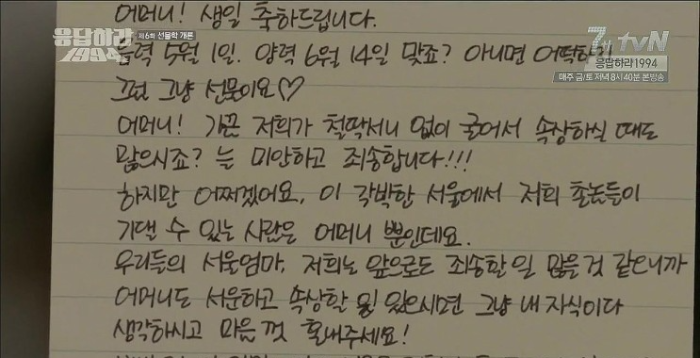 응답하라 1994
제6회 선물학 개론
7년 tvN
응답하라1994
매주 금/토 저녁 8시40분 본방송
어머니! 생일 축하드립니다.
음력 5월 1일. 양력 6월 14일 맞죠? 아니면 어떡하지
그럼 그냥 선물이요♡
어머니! 가끔 저희가 철딱서니 없이 굴어서 속상하실 때도
많으시죠? 늘 미안하고 죄송합니다!!!
하지만 어쩌겠어요. 이 각박한 서울에서 저희 촌놈들이
기댈 수 있는 사람은 어머니 뿐인데요.
우리들의 서울엄마. 저희는 앞으로도 죄송할 일 많을 것 같으니까
어머니도 서운하고 속상할 일 있으시면 그냥 내 자식이다
생각하시고 마음 껏 혼내주세요!